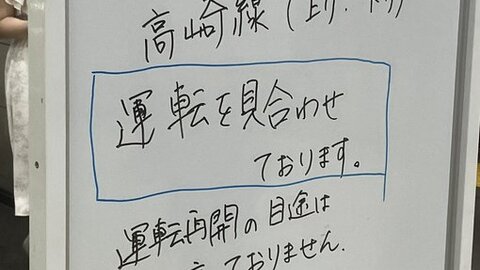 高崎線（上り・下り）
運転を見合わせ
ております。
運転再開の目途は
ておりません.